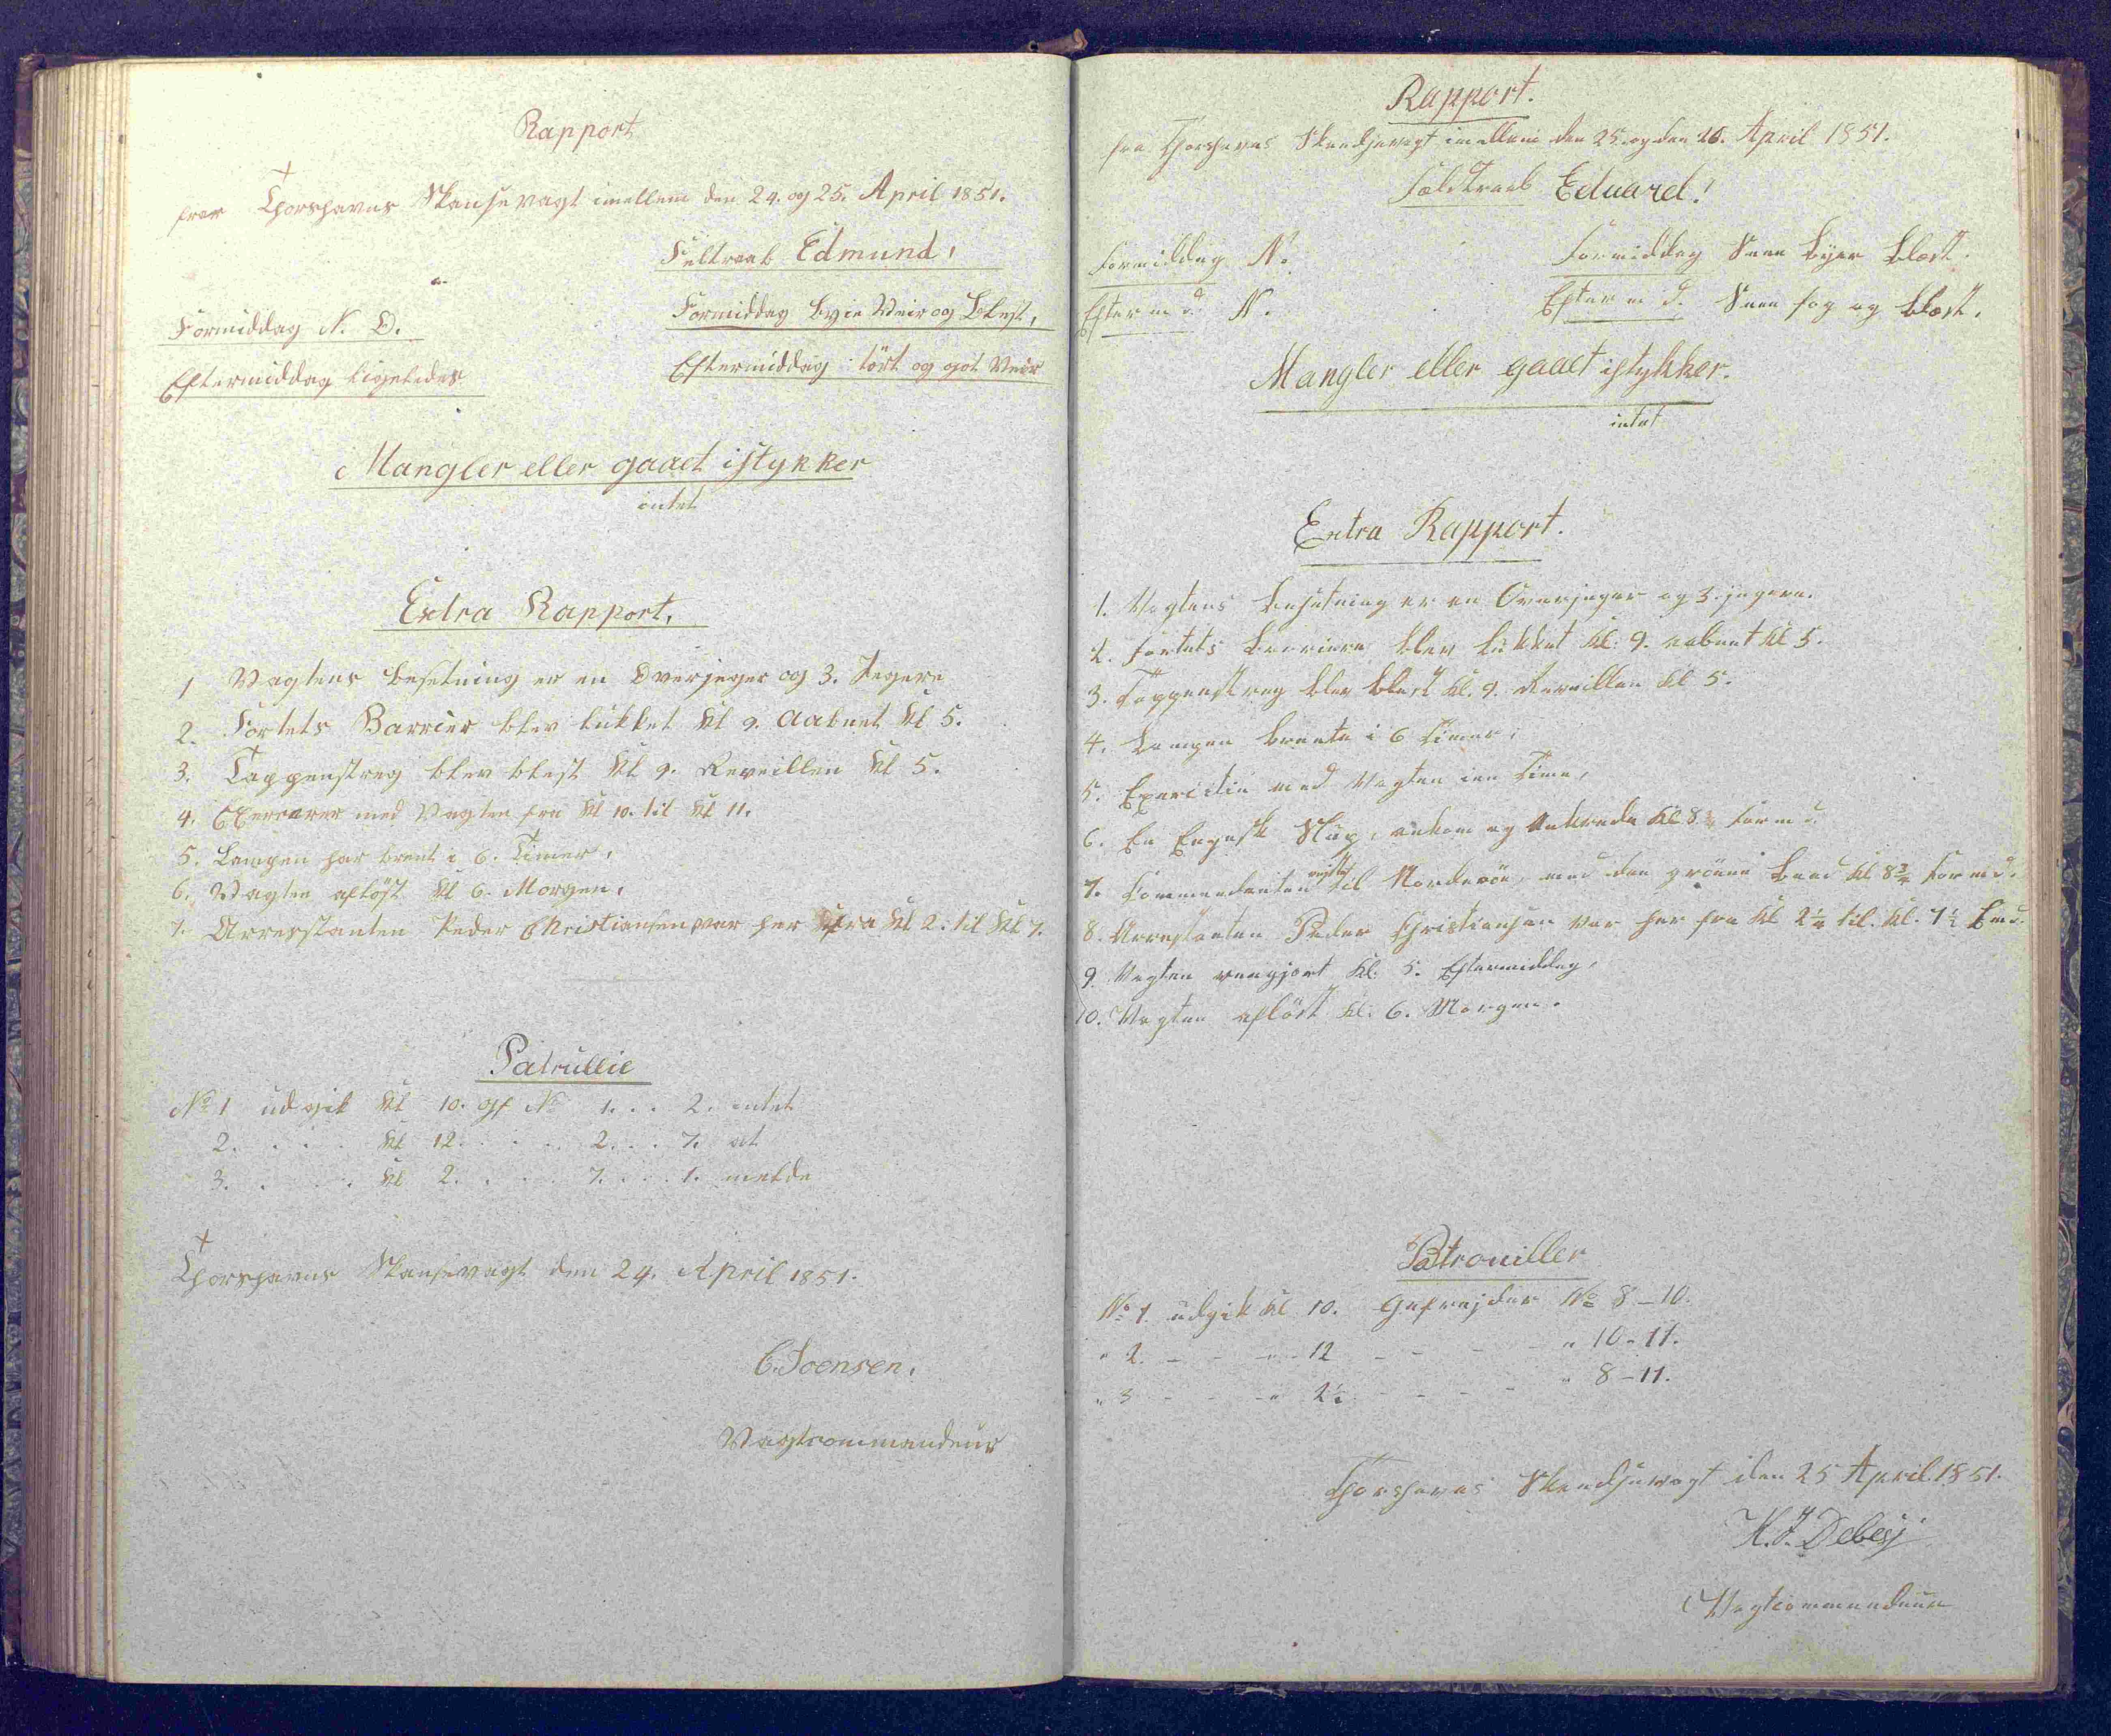 Rapport
fra Thorshavns Skansevagt imellem den 24. og 25. April 1851.
Feltraab Edmund,
Formiddag N. O.
Formiddag Byie Veir og Blest,
Eftermiddag ligeledes
Eftermiddag tört og got Veir
Mangler eller gaaet istykker
intet
Extra Rapport,
1 Vagtens besetning er en Overjeger og 3. Jegere
2. Fortets Barrier blev lukket Kl 9. aabnet Kl 5.
3. Tappenstreg blev blest Kl 9. Reveillen Kl 5.
4. Exercerer med Vagten fra Kl 10. til Kl 11.
5. Lampen har brent i 6. Timer,
6. Vagten aflöst Kl 6. Morgen,
7. Arrestanten Peder Christiansen var her fra Kl 2. til Kl 7.
Patrullie
No 1 udgik Kl 10. gf No 1. . . 2. intet
2. . . . . Kl 12. . . . . 2. . . 7. at
3. . . . . Kl 2. . . . . 7. . . 1. melde
Thorshavns Skansevagt den 24. April 1851.
C. Joensen,
Vagtcommandeur
Rapport.
fra Thorshavns Skandsevagt imellem den 25. og den 26. April 1851.
Feldtraab Eduard!
Formiddag N.
Formiddag Snee byer blæst.
Efter m d. N.
Efter m d. Snee fog og blæst.
Mangler eller gaaet istykker.
intet
Extra Rapport.
1. Vagtens besetning er en Overjeger og 3. jegere.
2. Fortets barriere blev lukket Kl. 9. aabnet Kl 5.
3. Tappenstreg blev blest Kl. 9. Reveillen Kl 5.
4. Lampen brente i 6 Timer,
5. Exercitie med Vagten ien Time,
6. En Engelsk Slup, ankom og Ankrede Kl 8. Form d.
7. Commendanten reiste til Norderöe, med den grönne baad Kl 8 3/4 Form d.
8. Arrestanten Peder Christiansen var her fra Kl 2 1/4 til. Kl. 7 1/2 Em d.
9. Vagten reengjort Kl. 5. Eftermiddag,
10. Vagten aflöst Kl. 6. Morgen.
Patrouiller
No 1. udgik Kl 10. Gefrejder No 8 - 10.
" 2. - - - " - 12 - - - - " 10 - 11.
" 3 - - - " 2 1/2 - - - - " 8 - 11.
Thorshavns Skandsevagt den 25 April 1851.
H. J. Debesj
Vagtcommandeur